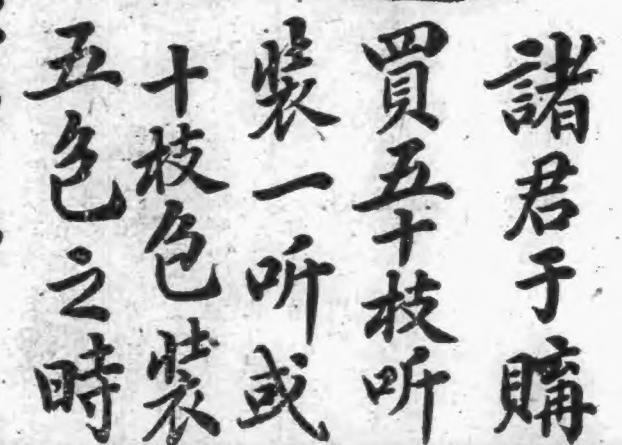 諸君于購
買五十枝听
裝一听或
十枝包裝
五包之時